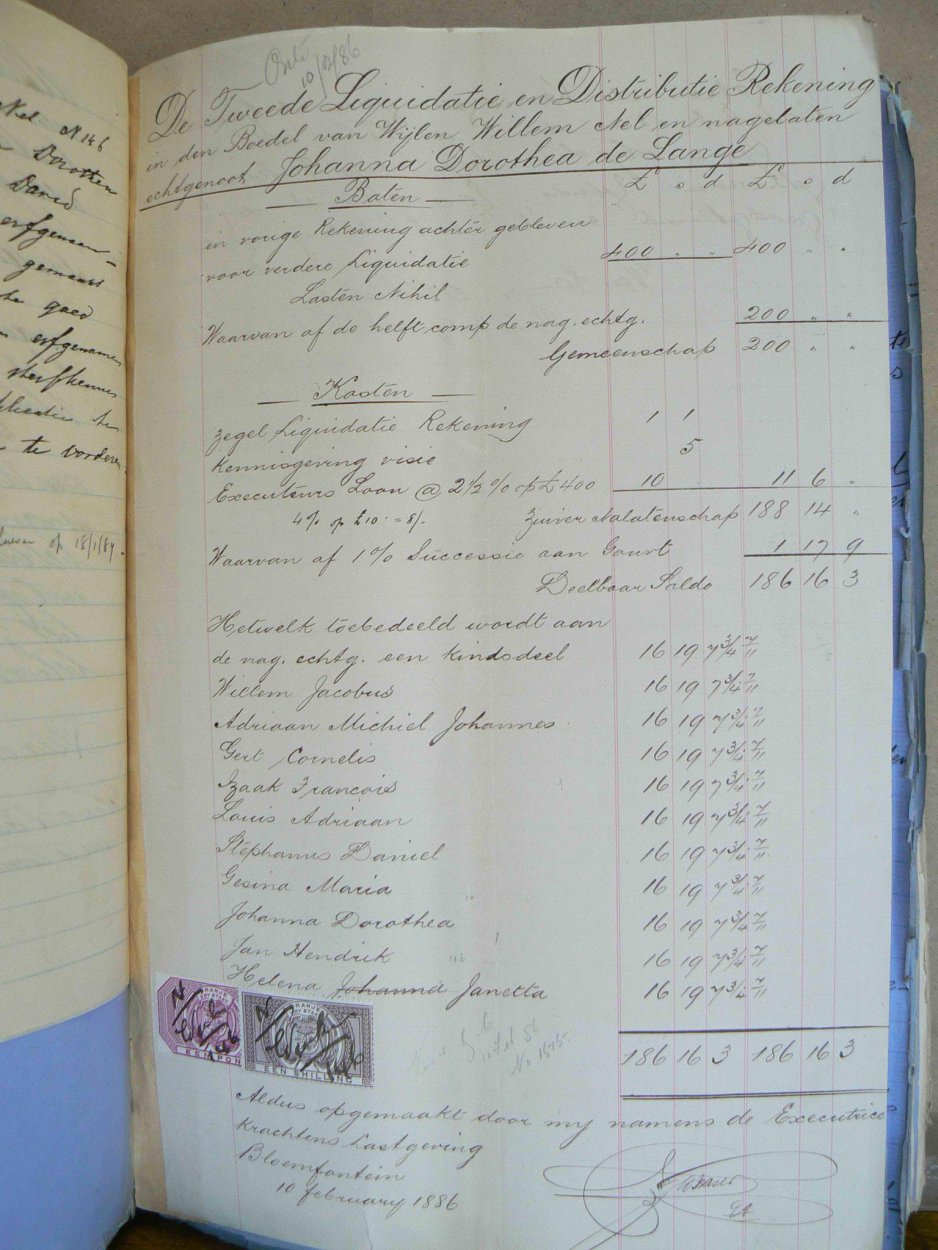 Nel N 146
Dorothea
David
erfgenaam-
gemeent
te goed
erfgenamen
sterfkennis
te
te vorderen
op 18/1/84
10/2/86
De Tweede Liquidatie en Distributie Rekening
in den Boedel van Wijlen Willem Nel en nagelaten
echtgenoot Johanna Dorothea de Lange
£ s d £ s d
Baten
in vorige Rekening achter gebleven
voor verdere Liquidatie 400 " " 400 "
Lasten Nihil
Waarvan af de helft comp de nag. echtg. 200 " "
Gemeenschap 200 " "
Kosten
Zegel Liquidatie Rekening 1 1
Kennisgeving visie 5
Executeurs Loon @ 2½ % op £400 10 11 6 "
4% op £10 = 8/- Zuiver Nalatenschap 188 14 "
Waarvan af 1% Successie aan Gouvt 1 17 9
Deelbaar Saldo 186 16 3
Hetwelk toebedeeld wordt aan
de nag. echtg. een Kindsdeel 16 19 7¾ 7/11
Willem Jacobus 16 19 7¾ 7/11
Adriaan Michiel Johannes 16 19 7¾ 7/11
Gert Cornelis 16 19 7¾ 7/11
Izaak Francois 16 19 7¾ 7/11
Louis Adriaan 16 19 7¾ 7/11
Stephanus Daniel 16 19 7¾ 7/11
Gesina Maria 16 19 7¾ 7/11
Johanna Dorothea 16 19 7¾ 7/11
Jan Hendrik 16 19 7¾ 7/11
Helena Johanna Janetta 16 19 7¾ 7/11
EEN PON
EEN SHILLING
No 1575
186 16 3 186 16 3
Aldus opgemaakt door my namens de Executrice
Krachtens Lastgeving
Bloemfontein
10 february 1886